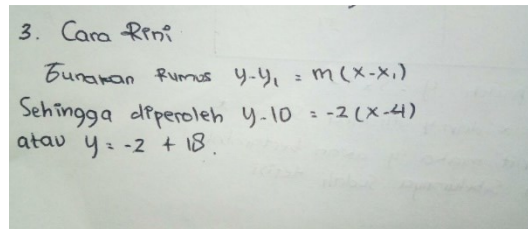 3. Cara Rini
Gunakan Rumus y-y₁ = m(x-x₁)
Sehingga diperoleh y-10 = -2(x-4)
atau y = -2 + 18.